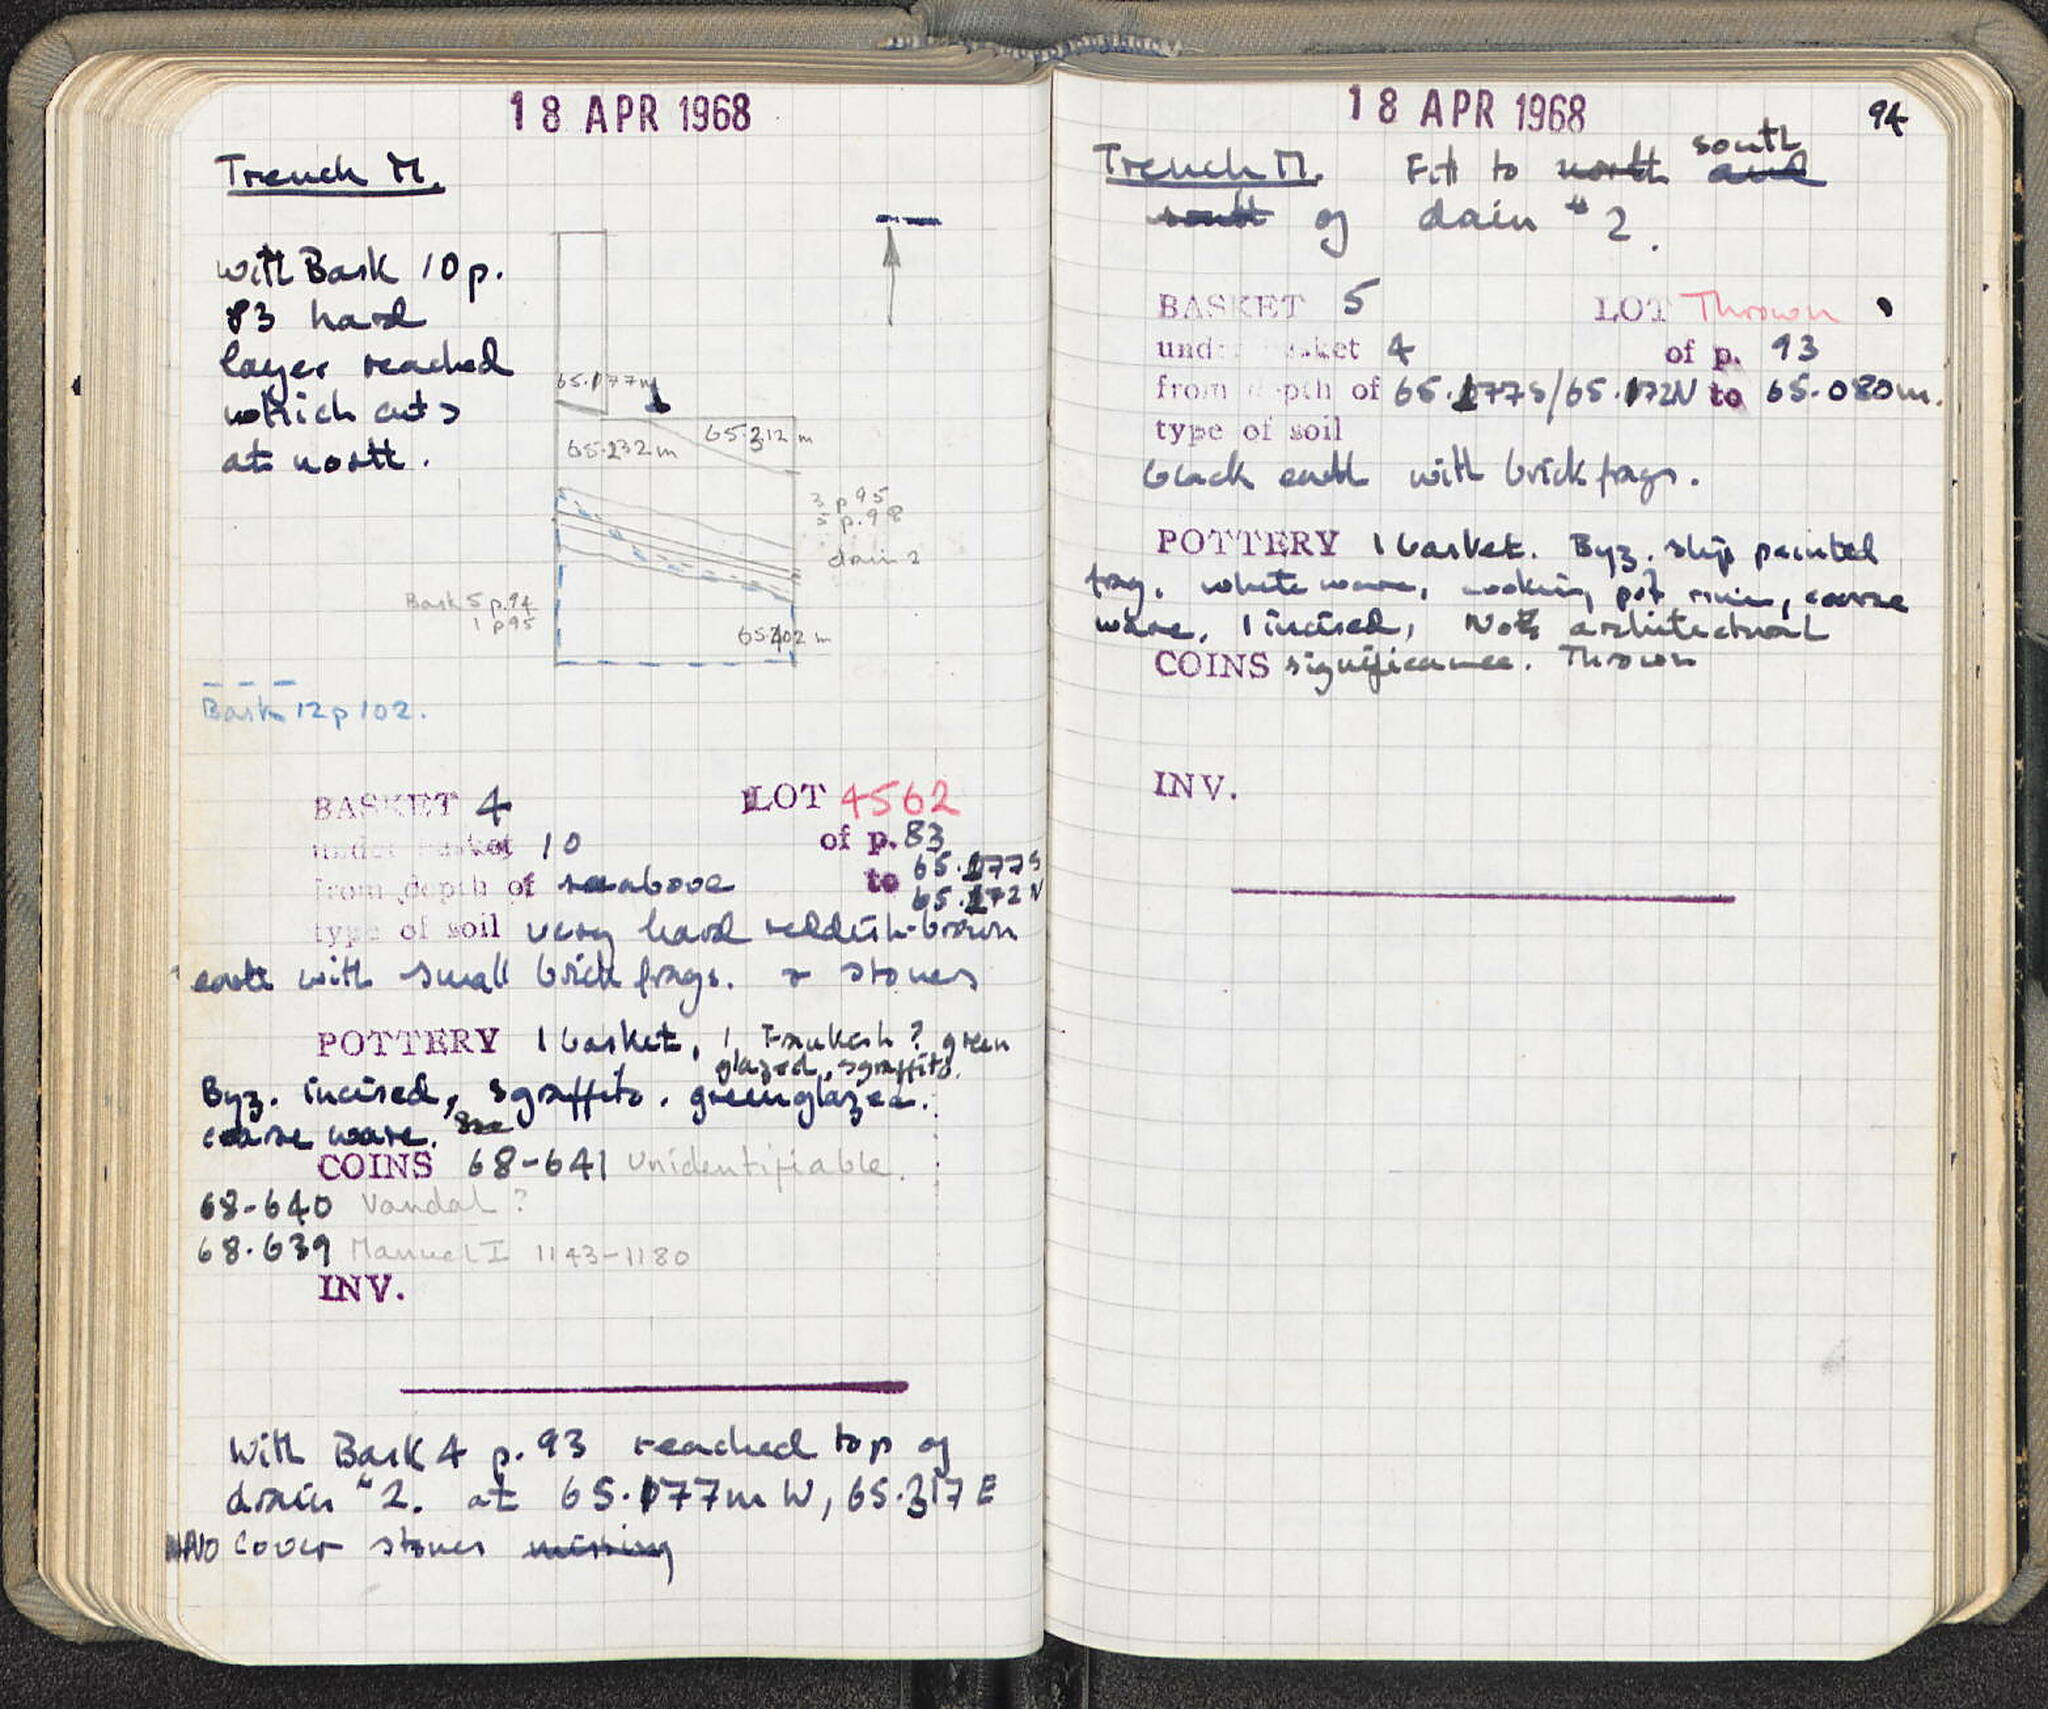 18 APR 1968
Trench M.
with Bask 10 p.
83 hard
layer reached
which cuts
at north.
65.177m
65.232 m
65.312 m
3 p 95
5 p. 98
drain 2
Bask 5 p.94
1 p 95
65.202 m
Bask 12 p 102.
BASKET 4 LOT 4562
under basket 10 of p. 83
from depth of see above to 65.177 S
65.172 N
type of soil very hard reddish-brown
earth with small brick frags. & stones
POTTERY 1 basket, 1 Frankish? green
glazed, sgraffito.
Byz. incised, sgraffito. green glazed.
coarse ware.
COINS 68-641 Unidentifiable.
68-640 Vandal?
68-639 Manuel I 1143-1180
INV.
With Bask 4 p. 93 reached top of
drain #2. at 65.177m W, 65.317 E
NO cover stones missing
18 APR 1968
94
Trench M. Fill to north south and
south of drain #2.
BASKET 5 LOT Thrown
under basket 4 of p. 93
from depth of 65.177S/65.172N to 65.080m.
type of soil
black earth with brick frags.
POTTERY 1 basket. Byz. slip painted
frag. white ware, cooking pot rim, coarse
ware. 1 incised, Not architectural
COINS significance. Thrown
INV.